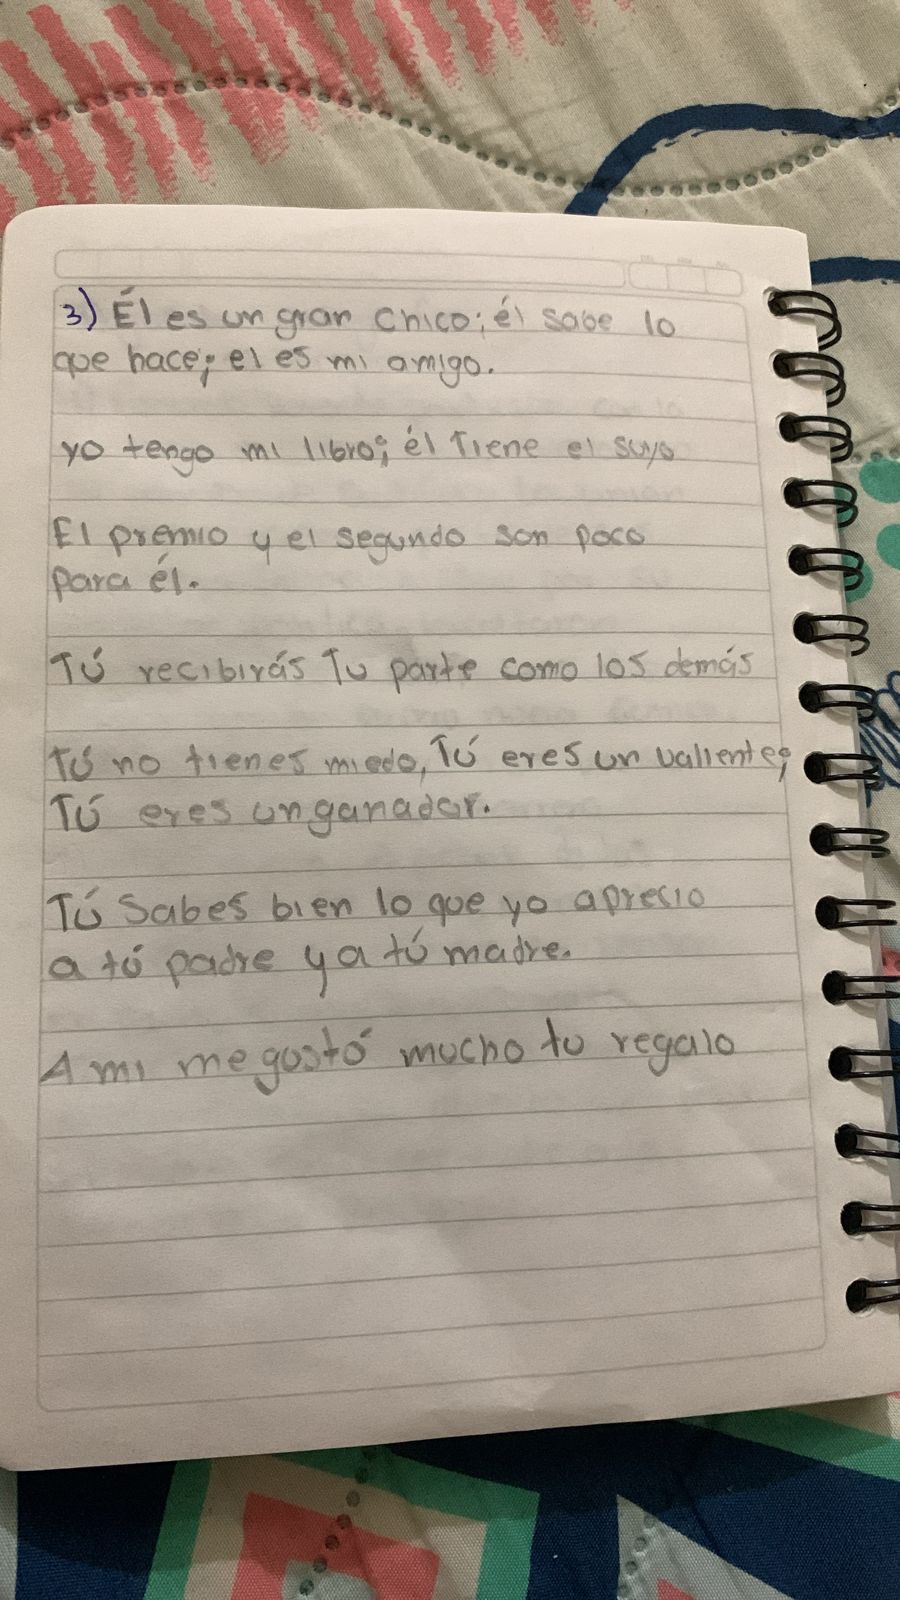 3) Él es un gran chico; él sabe lo
que hace; el es mi amigo.
yo tengo mi libro; él Tiene el suyo
El premio y el segundo son poco
para él.
Tú recibirás Tu parte como los demás
Tú no tienes miedo, Tú eres un valiente;
Tú eres un ganador.
Tú Sabes bien lo que yo aprecio
a tú padre y a tú madre.
A mi me gustó mucho tu regalo